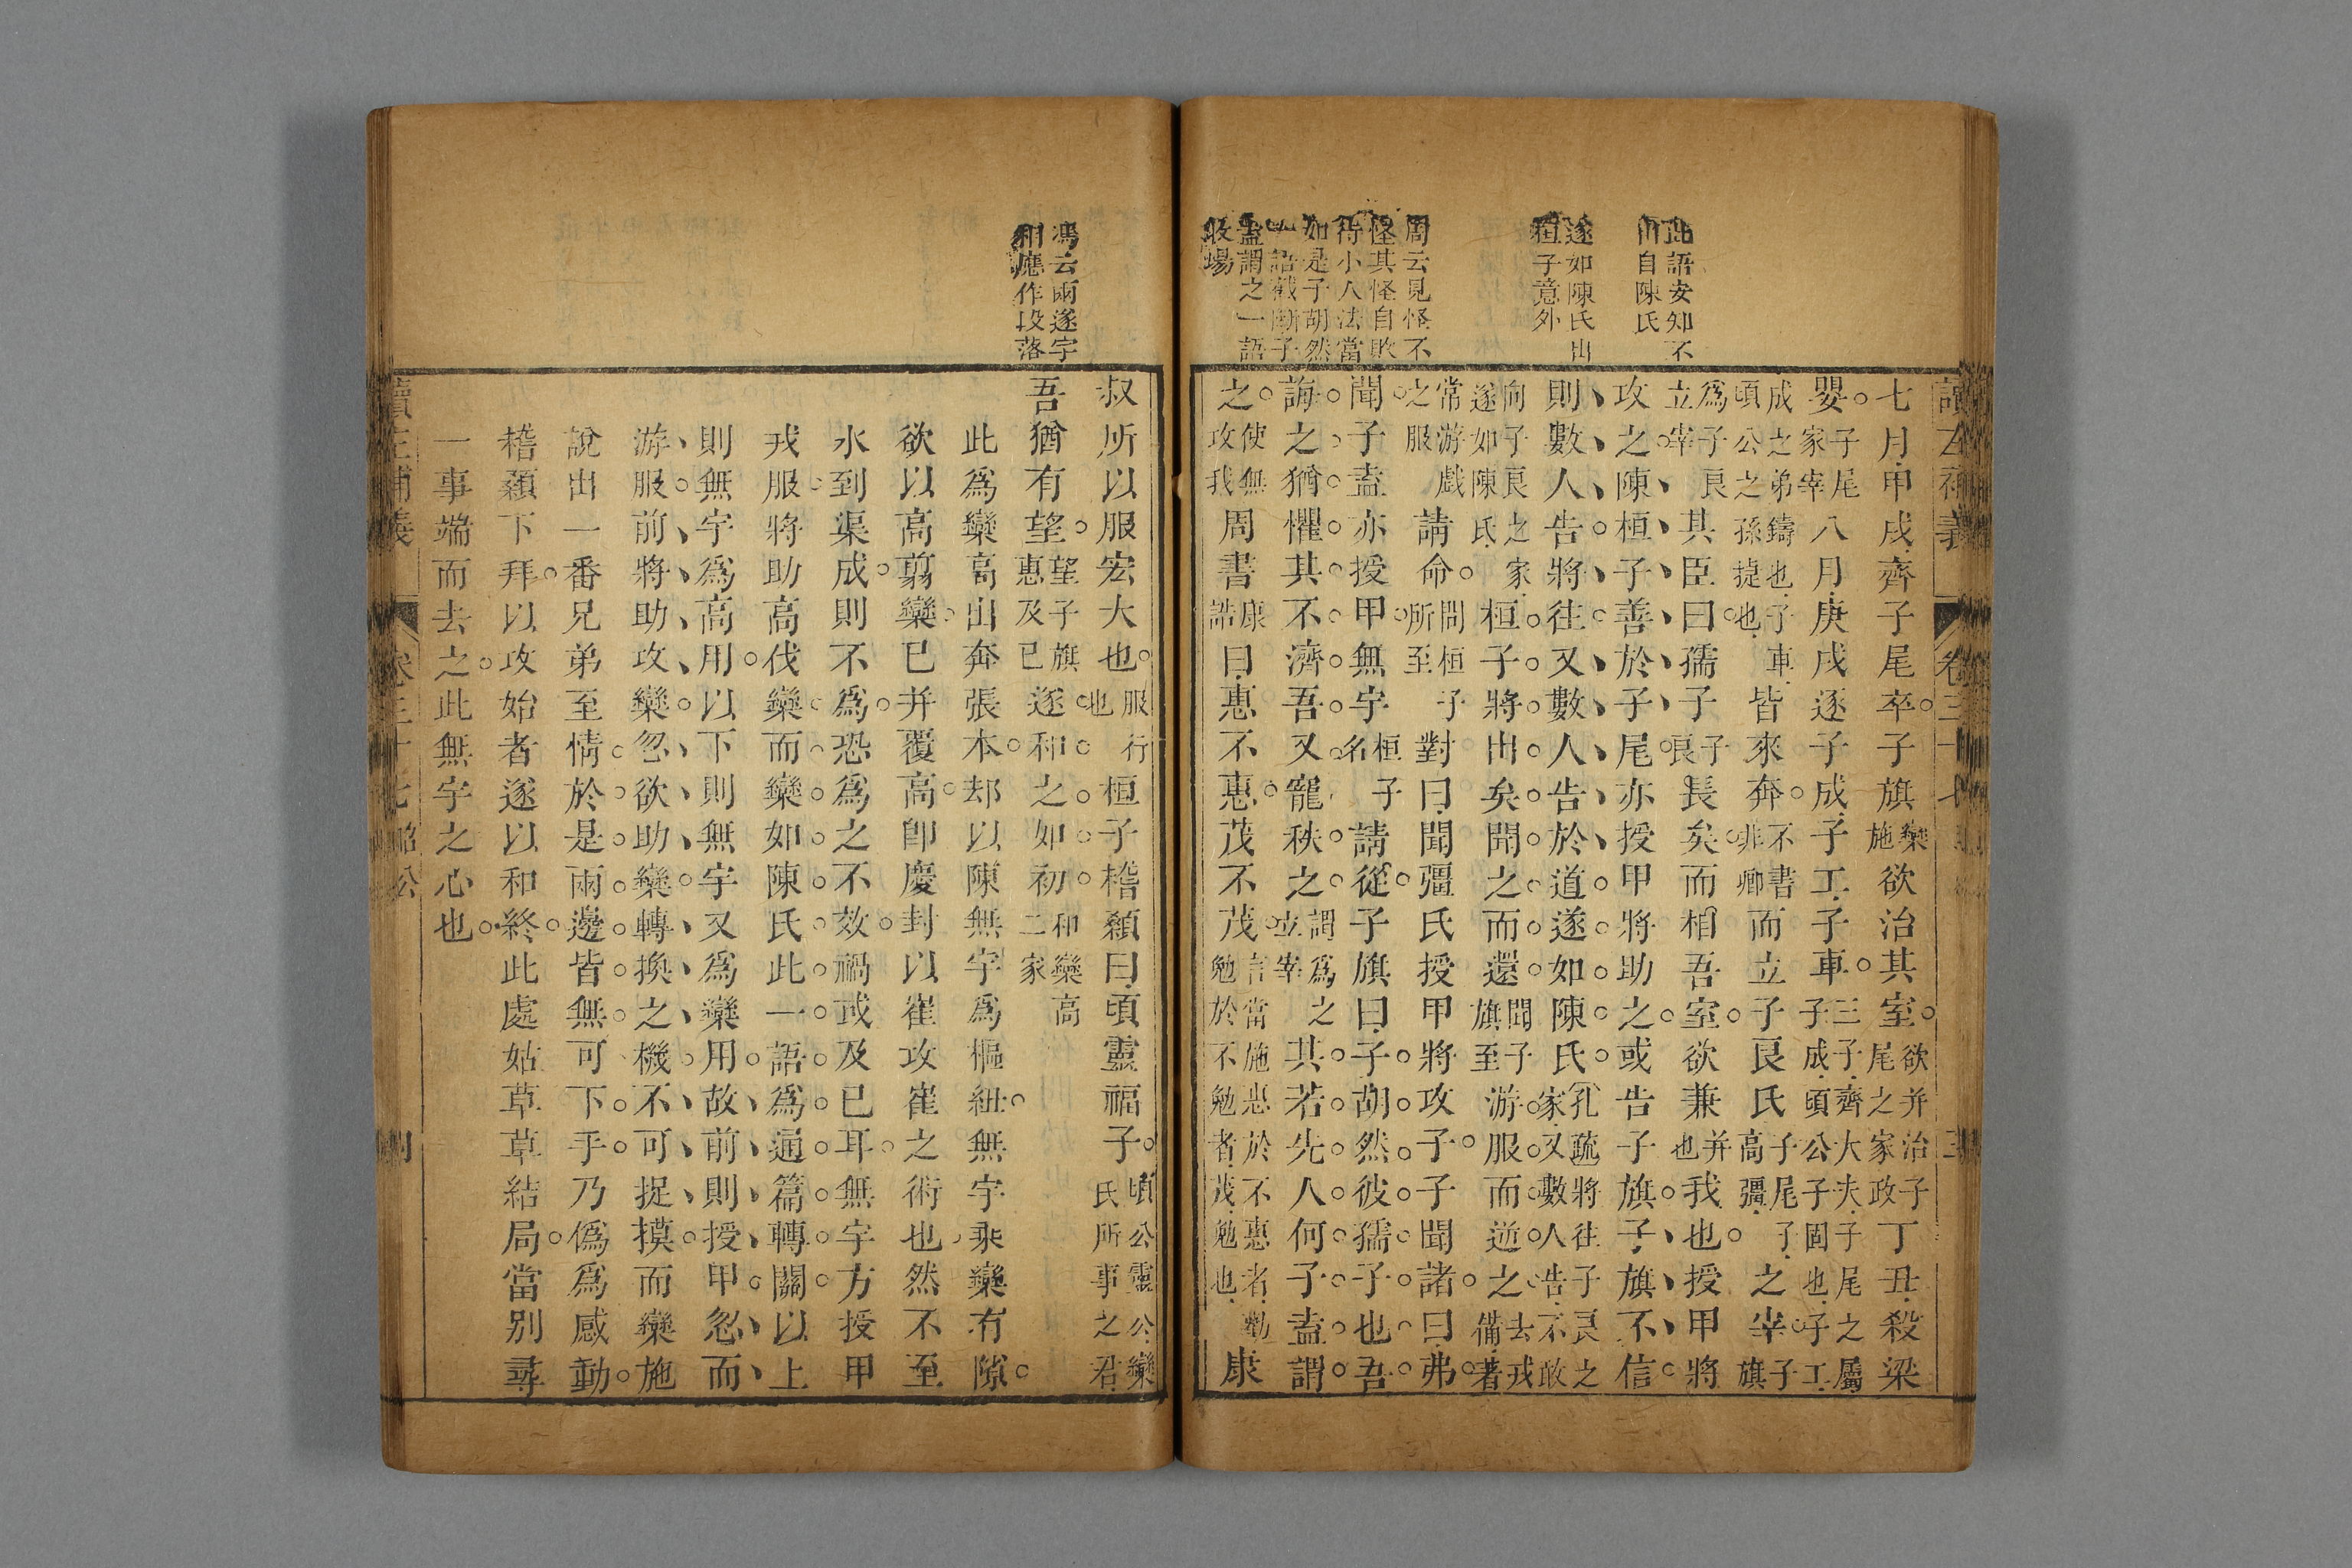 讀左補義 卷三十七 昭公 三
此語安知不
出自陳氏
遂如陳氏出
桓子意外
周云見怪不
怪其怪自敗
待小人法當
如是子胡然
一語截斷子
盍謂之一語
收場
七月甲戌齊子尾卒子旗欒施欲治其室欲并治子尾之家政丁丑殺梁
嬰子尾家宰八月庚戌逐子成子工子車三子齊大夫子尾之屬子成頃公子固也子工
成之弟鑄也子車頃公之孫捷也皆來奔不書非卿而立子良氏子尾子高彊之宰子旗
爲子良立宰其臣曰孺子子良長矣而相吾室欲兼并也我也授甲將
攻之陳桓子善於子尾亦授甲將助之或告子旗子旗不信
則數人告將往又數人告於道遂如陳氏孔疏將往子良之家又數人告不敢
向子良之家遂如陳氏桓子將出矣聞之而還聞子旗至游服而逆之去戎備著
常游戲之服請命問桓子所至對曰聞彊氏授甲將攻子子聞諸曰弗
聞子盍亦授甲無宇桓子名請從子旗曰子胡然彼孺子也吾
誨之猶懼其不濟吾又寵秩之謂爲之立宰其若先人何子盍謂
之使無攻我周書康誥曰惠不惠茂不茂言當施惠於不惠者勸勉於不勉者茂勉也康
馮云兩遂字
相應作段落
叔所以服宏大也服行也桓子稽顙曰頃靈福子頃公靈公欒氏所事之君
吾猶有望望子旗惠及已遂和之如初和欒高二家
此爲欒高出奔張本却以陳無宇爲樞紐無宇乘欒有隙
欲以高翦欒已并覆高卽慶封以崔攻崔之術也然不至
水到渠成則不爲恐爲之不效禍或及已耳無宇方授甲
戎服將助高伐欒而欒如陳氏此一語爲通篇轉關以上
則無宇爲高用以下則無宇又爲欒用故前則授甲忽而
游服前將助攻欒忽欲助欒轉換之機不可捉摸而欒施
說出一番兄弟至情於是兩邊皆無可下手乃僞爲感動
稽顙下拜以攻始者遂以和終此處姑草草結局當别尋
一事端而去之此無宇之心也
讀左補義 卷三十七 昭公